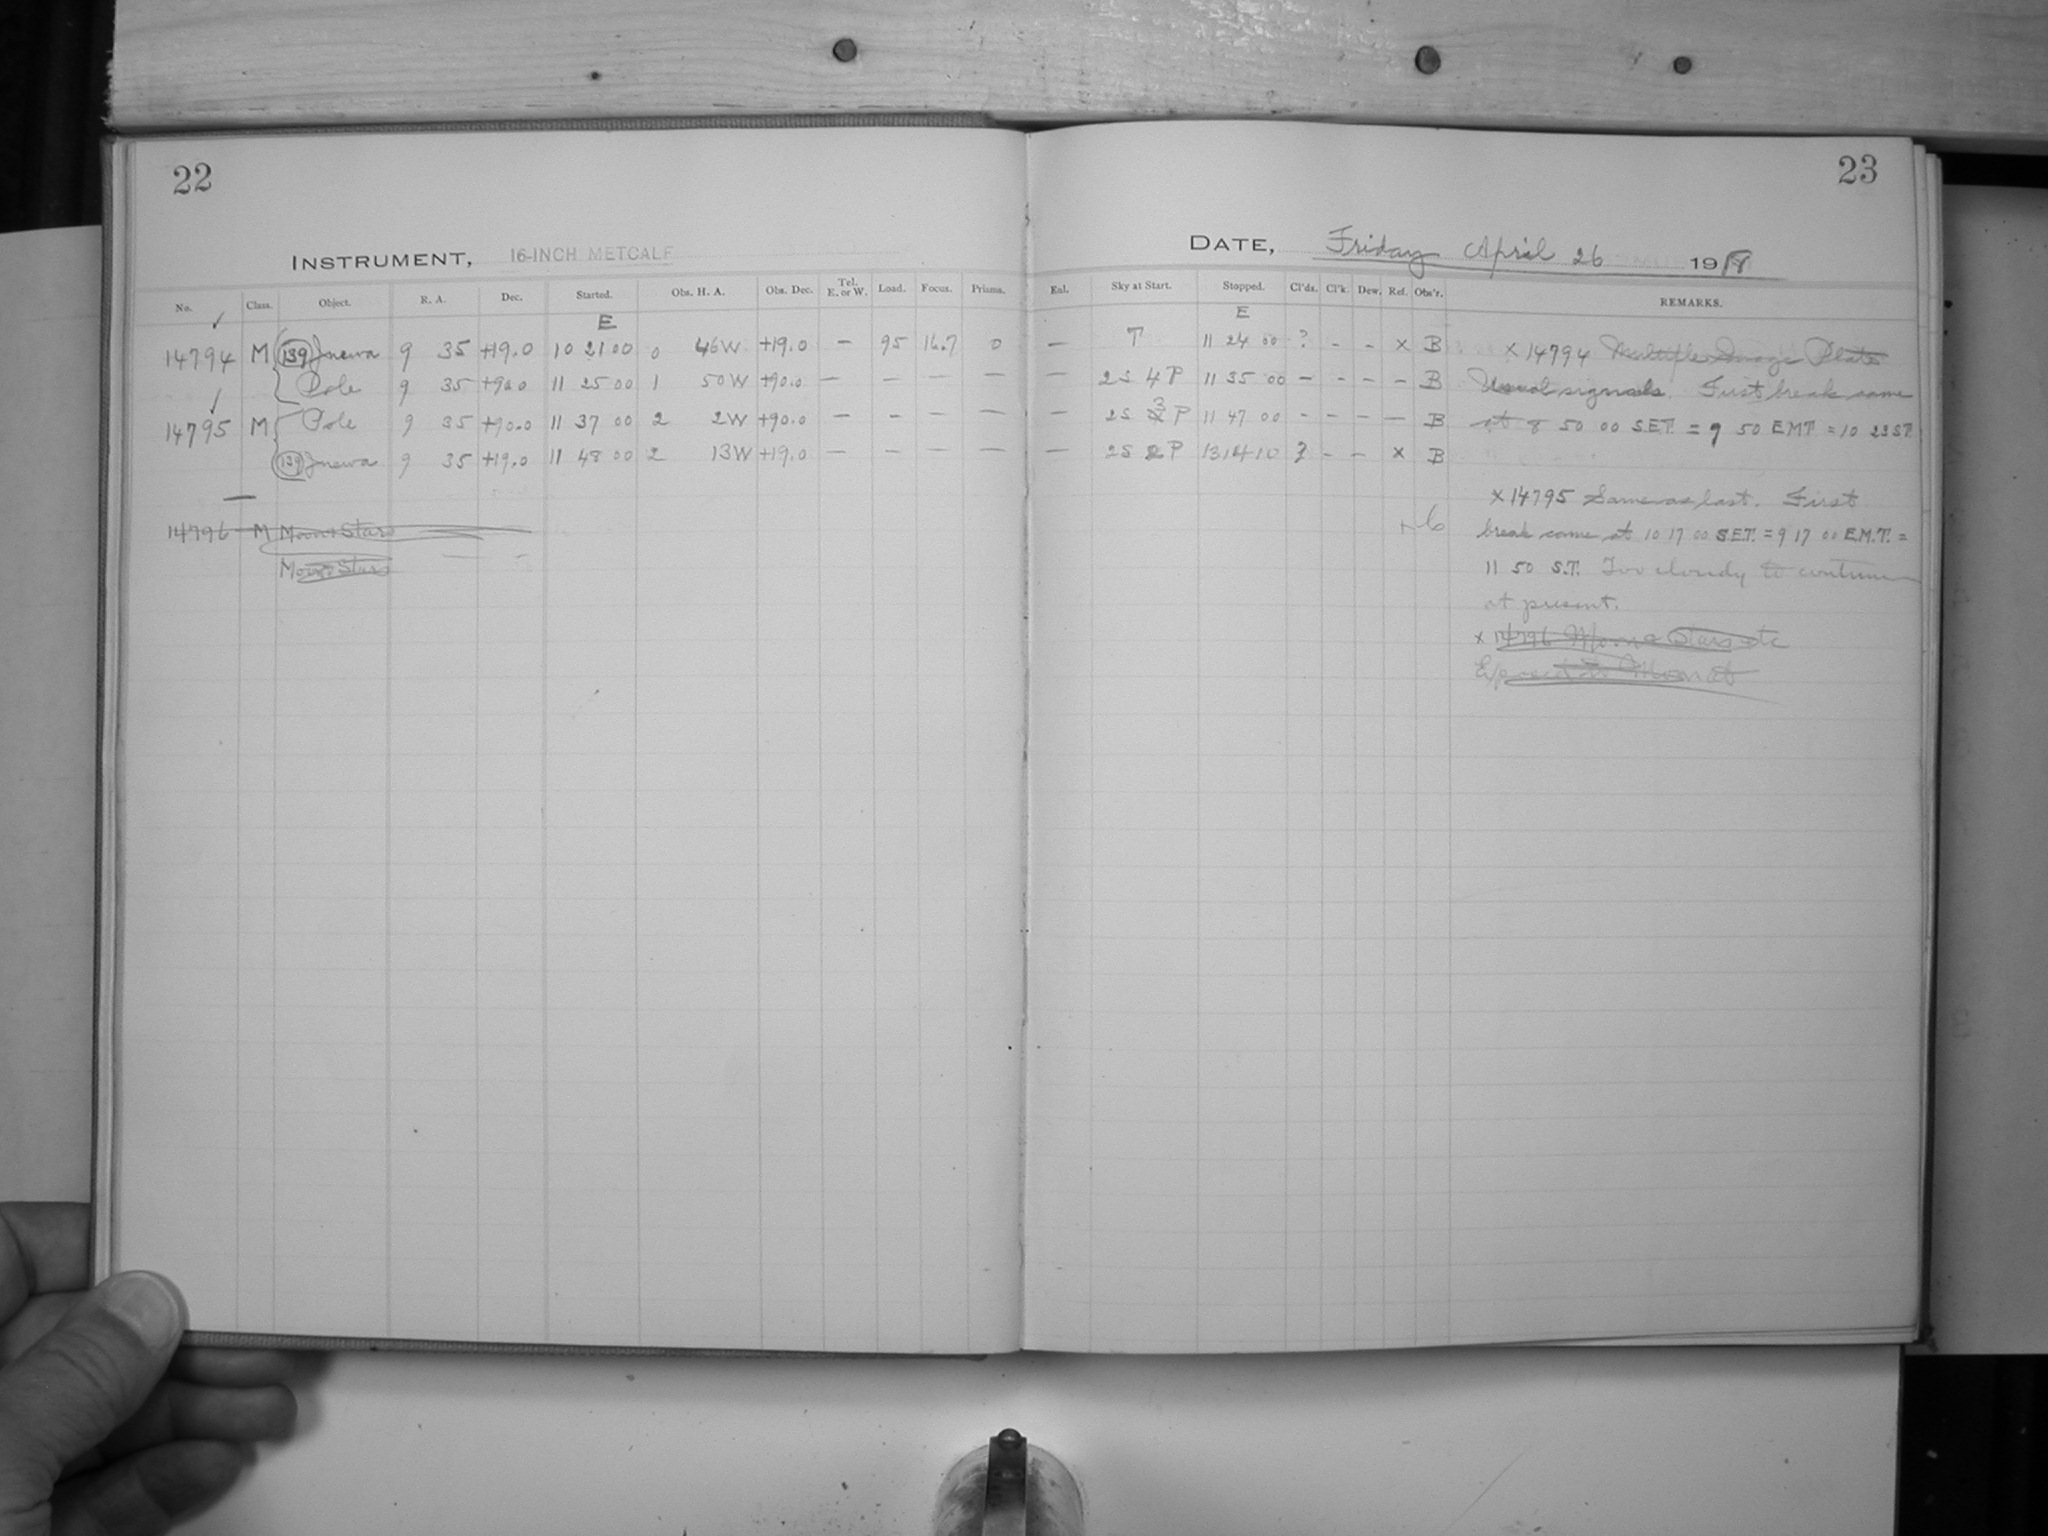 22
INSTRUMENT, 16-INCH METCALF
No. Class. Object. R. A. Dec. Started. Obs. H. A. Obs. Dec. Tel. E. or W. Load. Focus. Prisms.
E
14794 M (139) Juewa 9 35 +19.0 10 21 00 0 46W +19.0 — 95 16.7 0
Pole 9 35 +90.0 11 25 00 1 50W +90.0 — — — —
14795 M Pole 9 35 +90.0 11 37 00 2 2W +90.0 — — — —
(139) Juewa 9 35 +19.0 11 48 00 2 13W +19.0 — — — —
14796 M Moon & Stars
Moon & Stars
23
DATE, Friday April 26 1918
Enl. Sky at Start. Stopped. Cl'ds. Cl'k. Dew. Ref. Obs'r. REMARKS.
E
— T 11 24 00 ? - - x B
— 2S 4 P 11 35 00 - - - - B
— 2S 3 P 11 47 00 - - - — B
— 2S 2 P 13 14 10 ? - - x B
x 14794 Multiple Image Plate
Usual signals. First break came
at 8 50 00 S.E.T. = 9 50 E.M.T. = 10 23 S.T.
x 14795 Same as last. First
break came at 10 17 00 S.E.T. = 9 17 00 E.M.T. =
11 50 S.T. Too cloudy to continue
at present.
x 14796 Moon & Stars etc
Exposed to Moon at